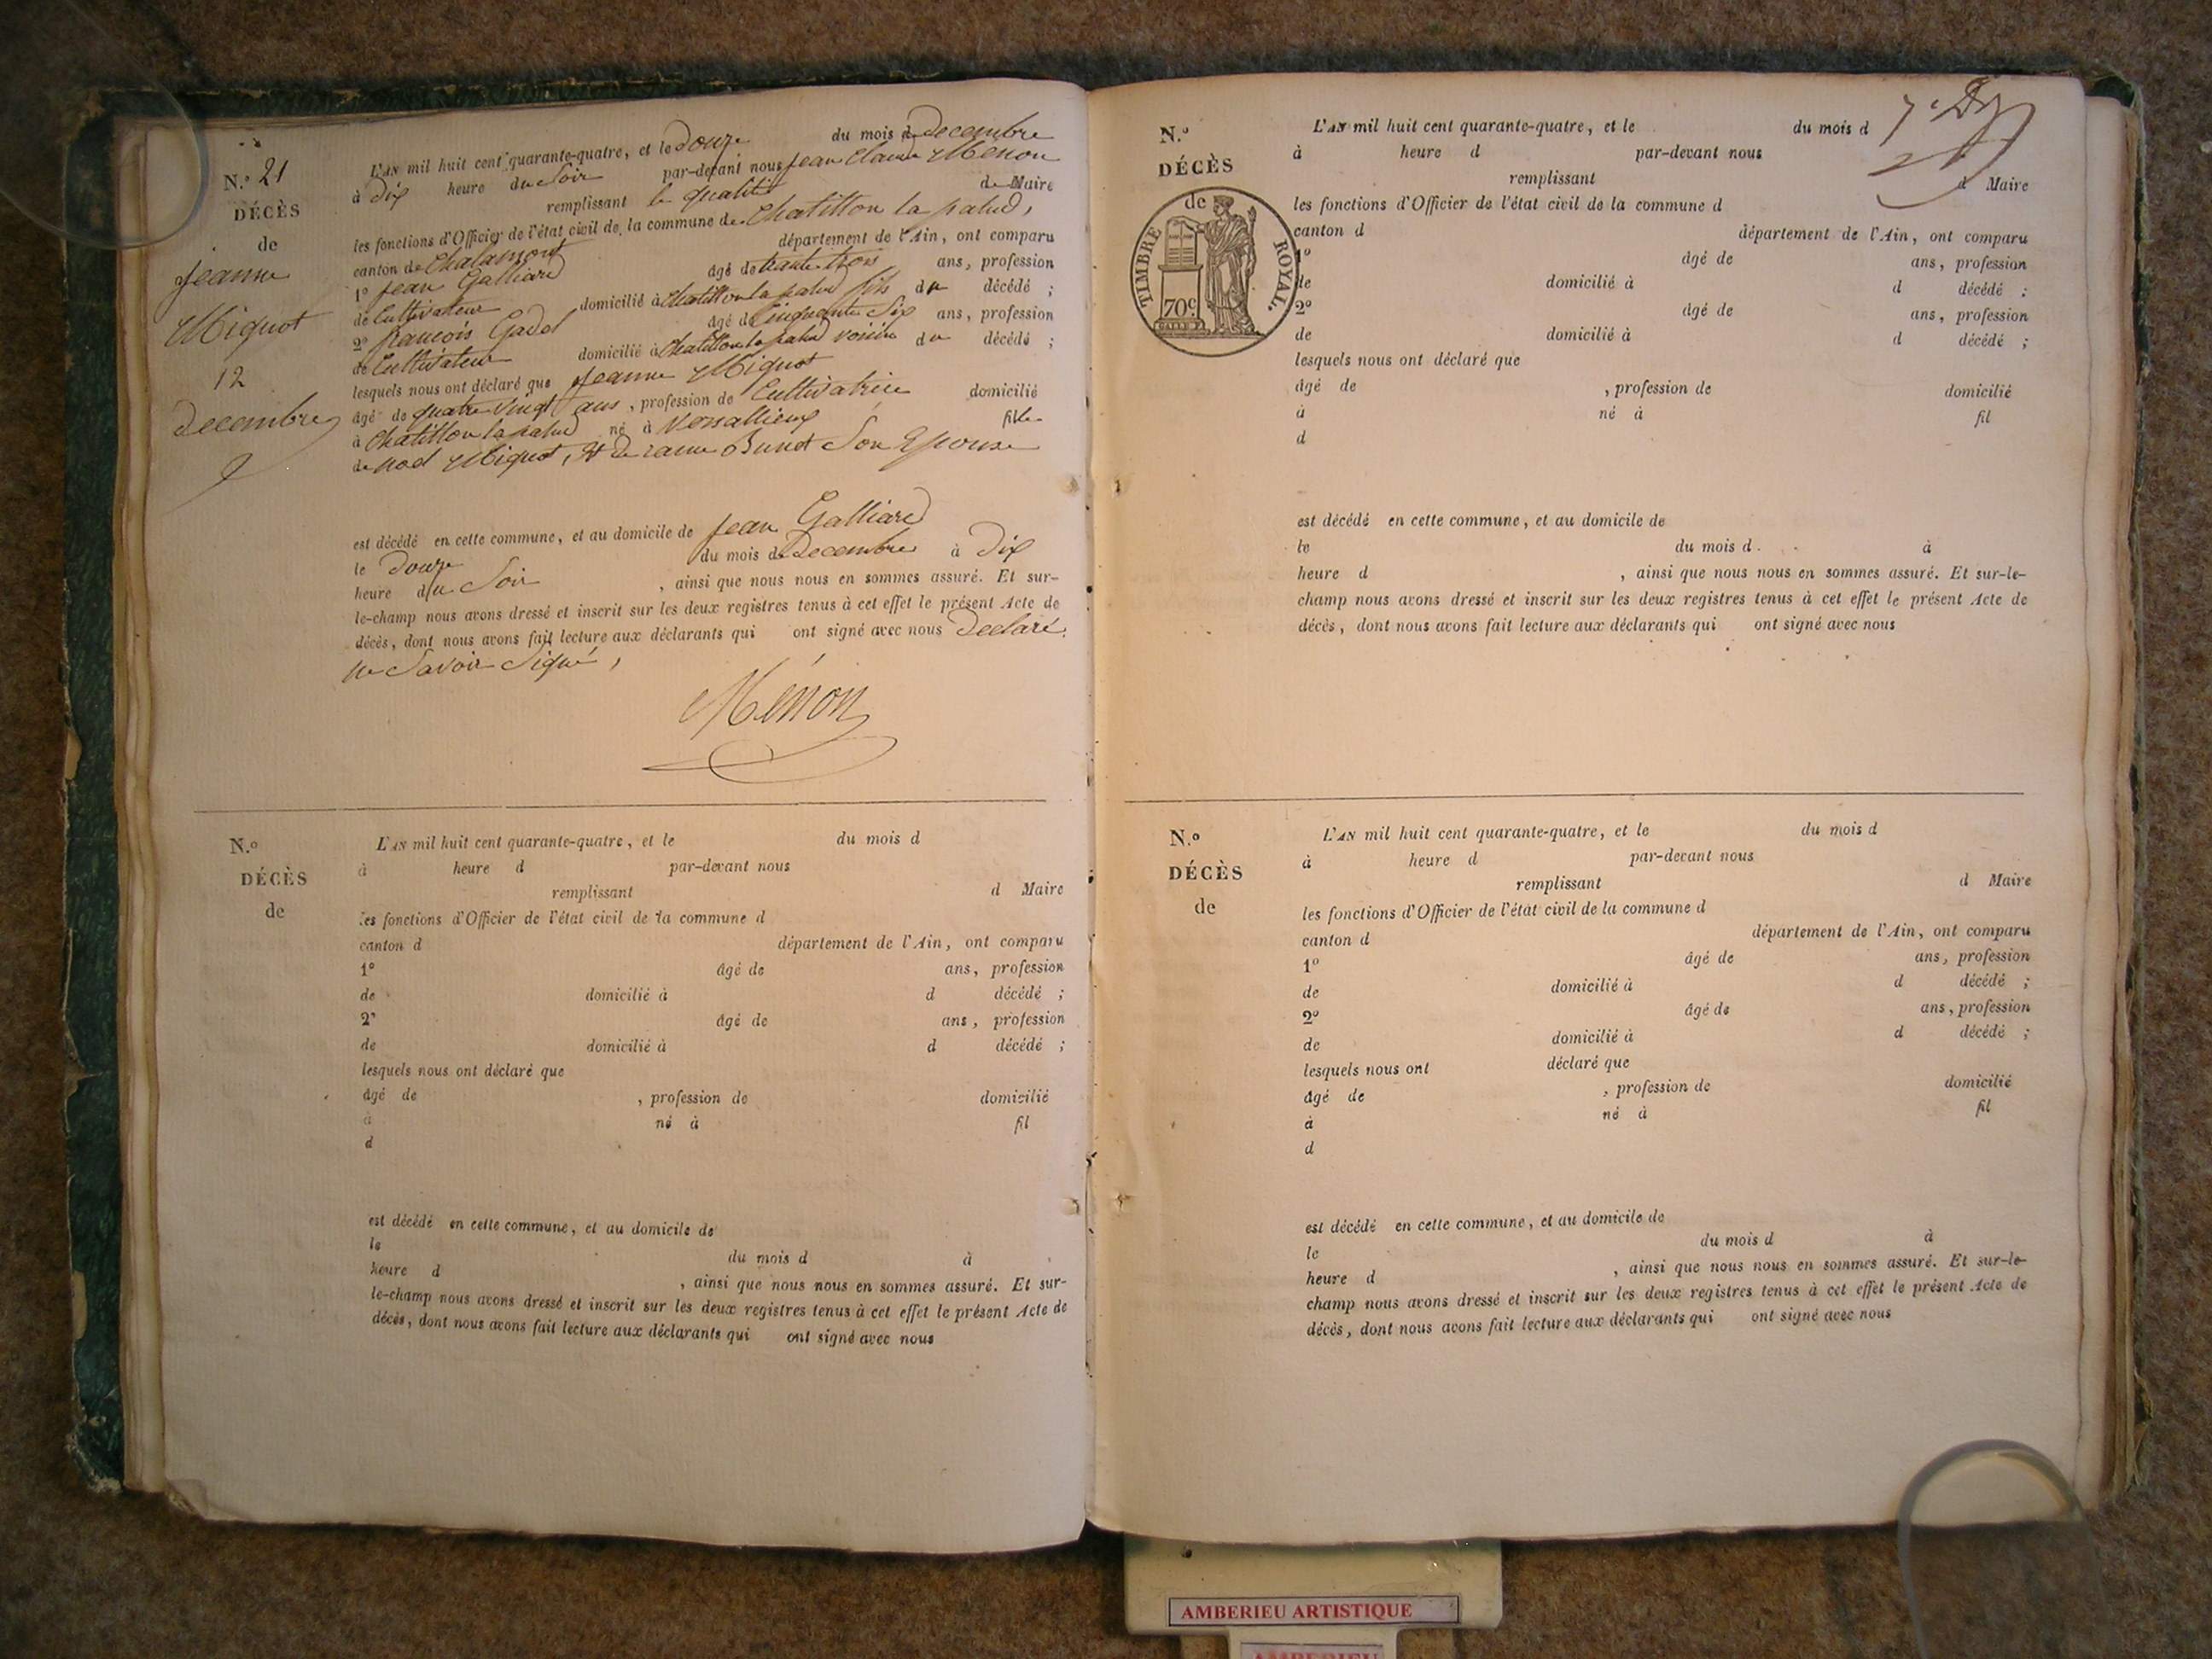 N.º 21
DÉCÈS
de
Jeanne
Miquet
12
Decembre
L'AN mil huit cent quarante-quatre, et le Douze du mois de Decembre
à Dix heure du Soir par-devant nous Jean Claude Ménon
remplissant la qualité de Maire
les fonctions d'Officier de l'état civil de la commune de Chatillon la palud,
canton de Chalamont département de l'Ain, ont comparu
1º Jean Galliard âgé de trante trois ans, profession
de Cultivateur domicilié à Chatillon la palud fils du décédé ;
2º francois Gadol âgé de Cinquante Six ans, profession
de Cultivateur domicilié à Chatillon la palud voisin du décédé ;
lesquels nous ont déclaré que Jeanne Miquet
âgé de quatre vingt ans, profession de Cultivatrice domicilié
à Chatillon la palud né à Versallieux fille
de noel Miquet, et de Bunet Son Epouse
est décédé en cette commune, et au domicile de Jean Galliard
le Douze du mois de Decembre à Dix
heure du Soir , ainsi que nous nous en sommes assuré. Et sur-
le-champ nous avons dressé et inscrit sur les deux registres tenus à cet effet le présent Acte de
décès, dont nous avons fait lecture aux déclarants qui ont signé avec nous Declaré
ne Savoir Signé,
Ménon
N.º
DÉCÈS
de
L'AN mil huit cent quarante-quatre, et le du mois d
à heure d par-devant nous
remplissant d Maire
les fonctions d'Officier de l'état civil de la commune d
canton d département de l'Ain, ont comparu
1º âgé de ans, profession
de domicilié à d décédé ;
2º âgé de ans, profession
de domicilié à d décédé ;
lesquels nous ont déclaré que
âgé de , profession de domicilié
à né à fil
d
est décédé en cette commune, et au domicile de
le du mois d à
heure d , ainsi que nous nous en sommes assuré. Et sur-
le-champ nous avons dressé et inscrit sur les deux registres tenus à cet effet le présent Acte de
décès, dont nous avons fait lecture aux déclarants qui ont signé avec nous
N.º
DÉCÈS
de
TIMBRE ROYAL.
70c
L'AN mil huit cent quarante-quatre, et le du mois d
à heure d par-devant nous
remplissant d Maire
les fonctions d'Officier de l'état civil de la commune d
canton d département de l'Ain, ont comparu
1º âgé de ans, profession
de domicilié à d décédé ;
2º âgé de ans, profession
de domicilié à d décédé ;
lesquels nous ont déclaré que
âgé de , profession de domicilié
à né à fil
d
est décédé en cette commune, et au domicile de
le du mois d à
heure d , ainsi que nous nous en sommes assuré. Et sur-le-
champ nous avons dressé et inscrit sur les deux registres tenus à cet effet le présent Acte de
décès, dont nous avons fait lecture aux déclarants qui ont signé avec nous
N.º
DÉCÈS
de
L'AN mil huit cent quarante-quatre, et le du mois d
à heure d par-devant nous
remplissant d Maire
les fonctions d'Officier de l'état civil de la commune d
canton d département de l'Ain, ont comparu
1º âgé de ans, profession
de domicilié à d décédé ;
2º âgé de ans, profession
de domicilié à d décédé ;
lesquels nous ont déclaré que
âgé de , profession de domicilié
à né à fil
d
est décédé en cette commune, et au domicile de
le du mois d à
heure d , ainsi que nous nous en sommes assuré. Et sur-le-
champ nous avons dressé et inscrit sur les deux registres tenus à cet effet le présent Acte de
décès, dont nous avons fait lecture aux déclarants qui ont signé avec nous
AMBERIEU ARTISTIQUE
AMBERIEU